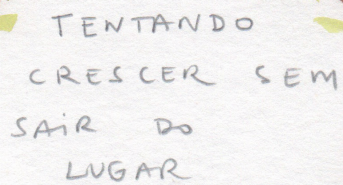 TENTANDO
CRESCER SEM
SAIR DO
LUGAR